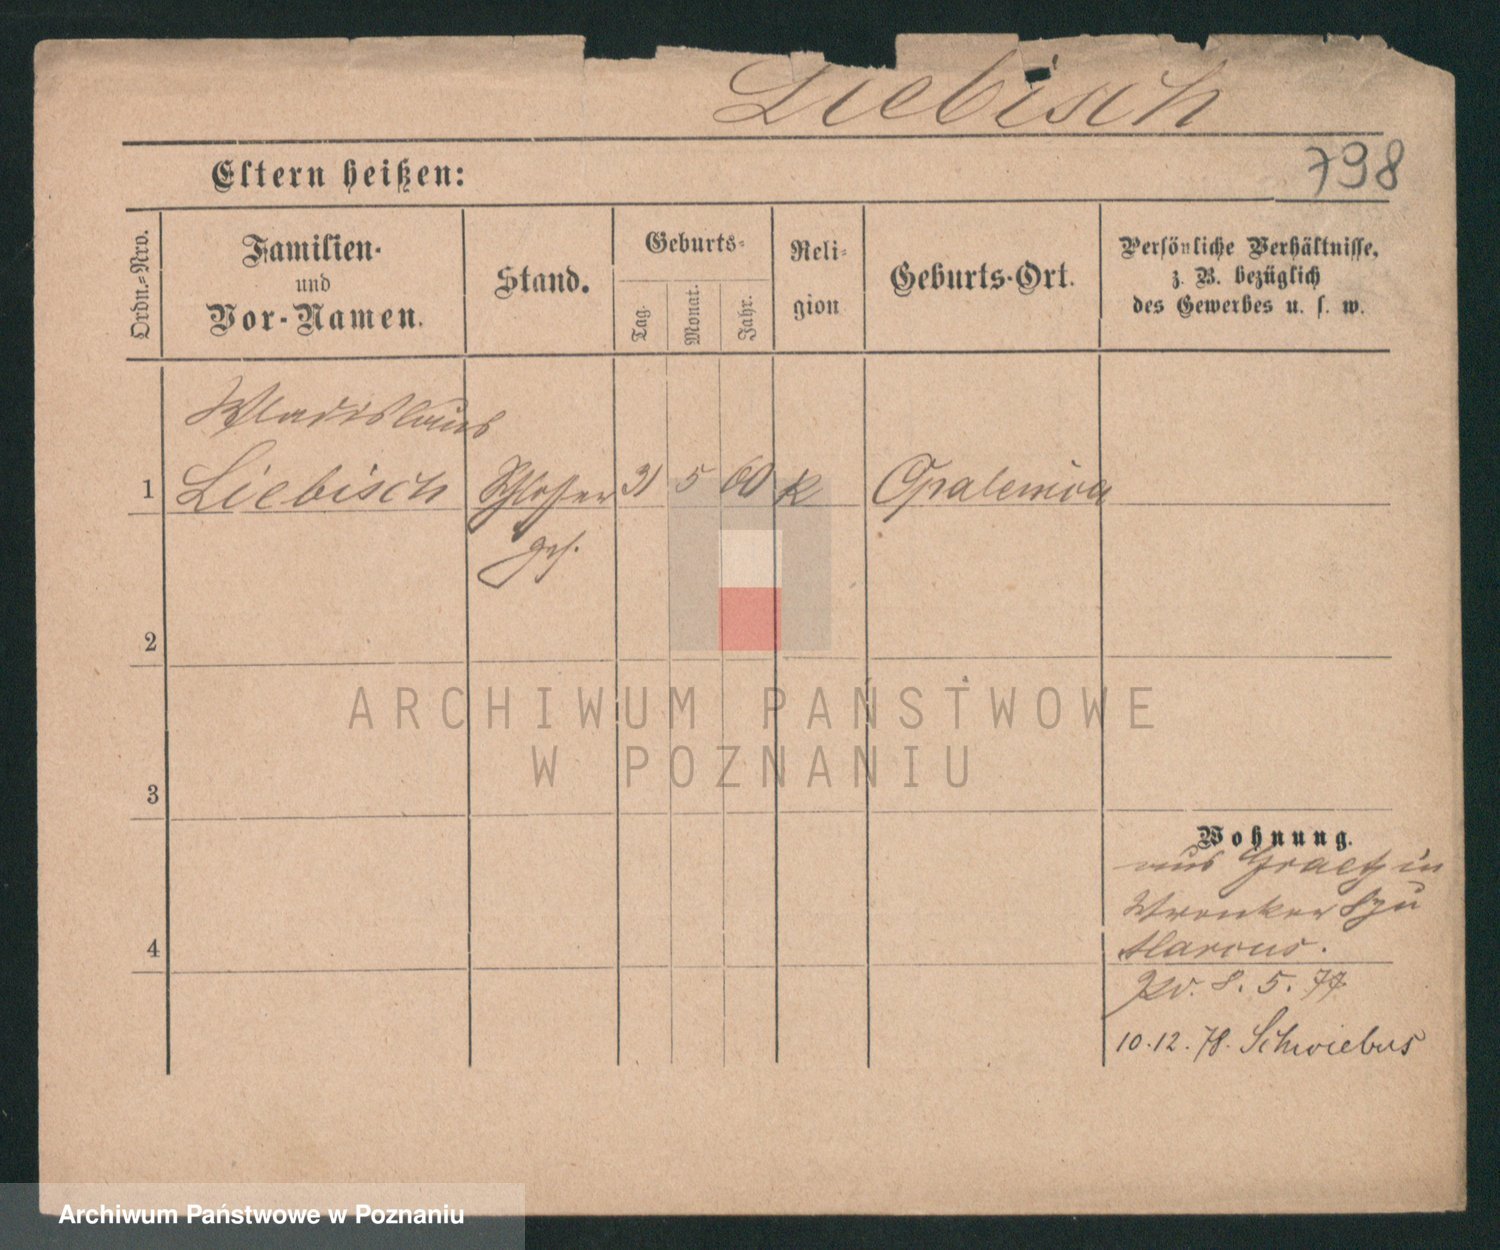 Liebisch
798
Eltern heißen:
Ordn.-Nro.
Familien-
und
Vor-Namen.
Stand.
Geburts-
Tag.
Monat.
Jahr.
Reli-
gion
Geburts-Ort.
Persönliche Verhältnisse,
z. B. bezüglich
des Gewerbes u. s. w.
Wladislaus
1 Liebisch Schlosser 31 5 60 K Opalenica
ges.
2
3
4
Wohnung.
aus Graetz in
Wronker 8 zu
Marcus.
Pv. 8. 5. 77
10. 12. 78. Schwiebus
ARCHIWUM PAŃSTWOWE
W POZNANIU
Archiwum Państwowe w Poznaniu